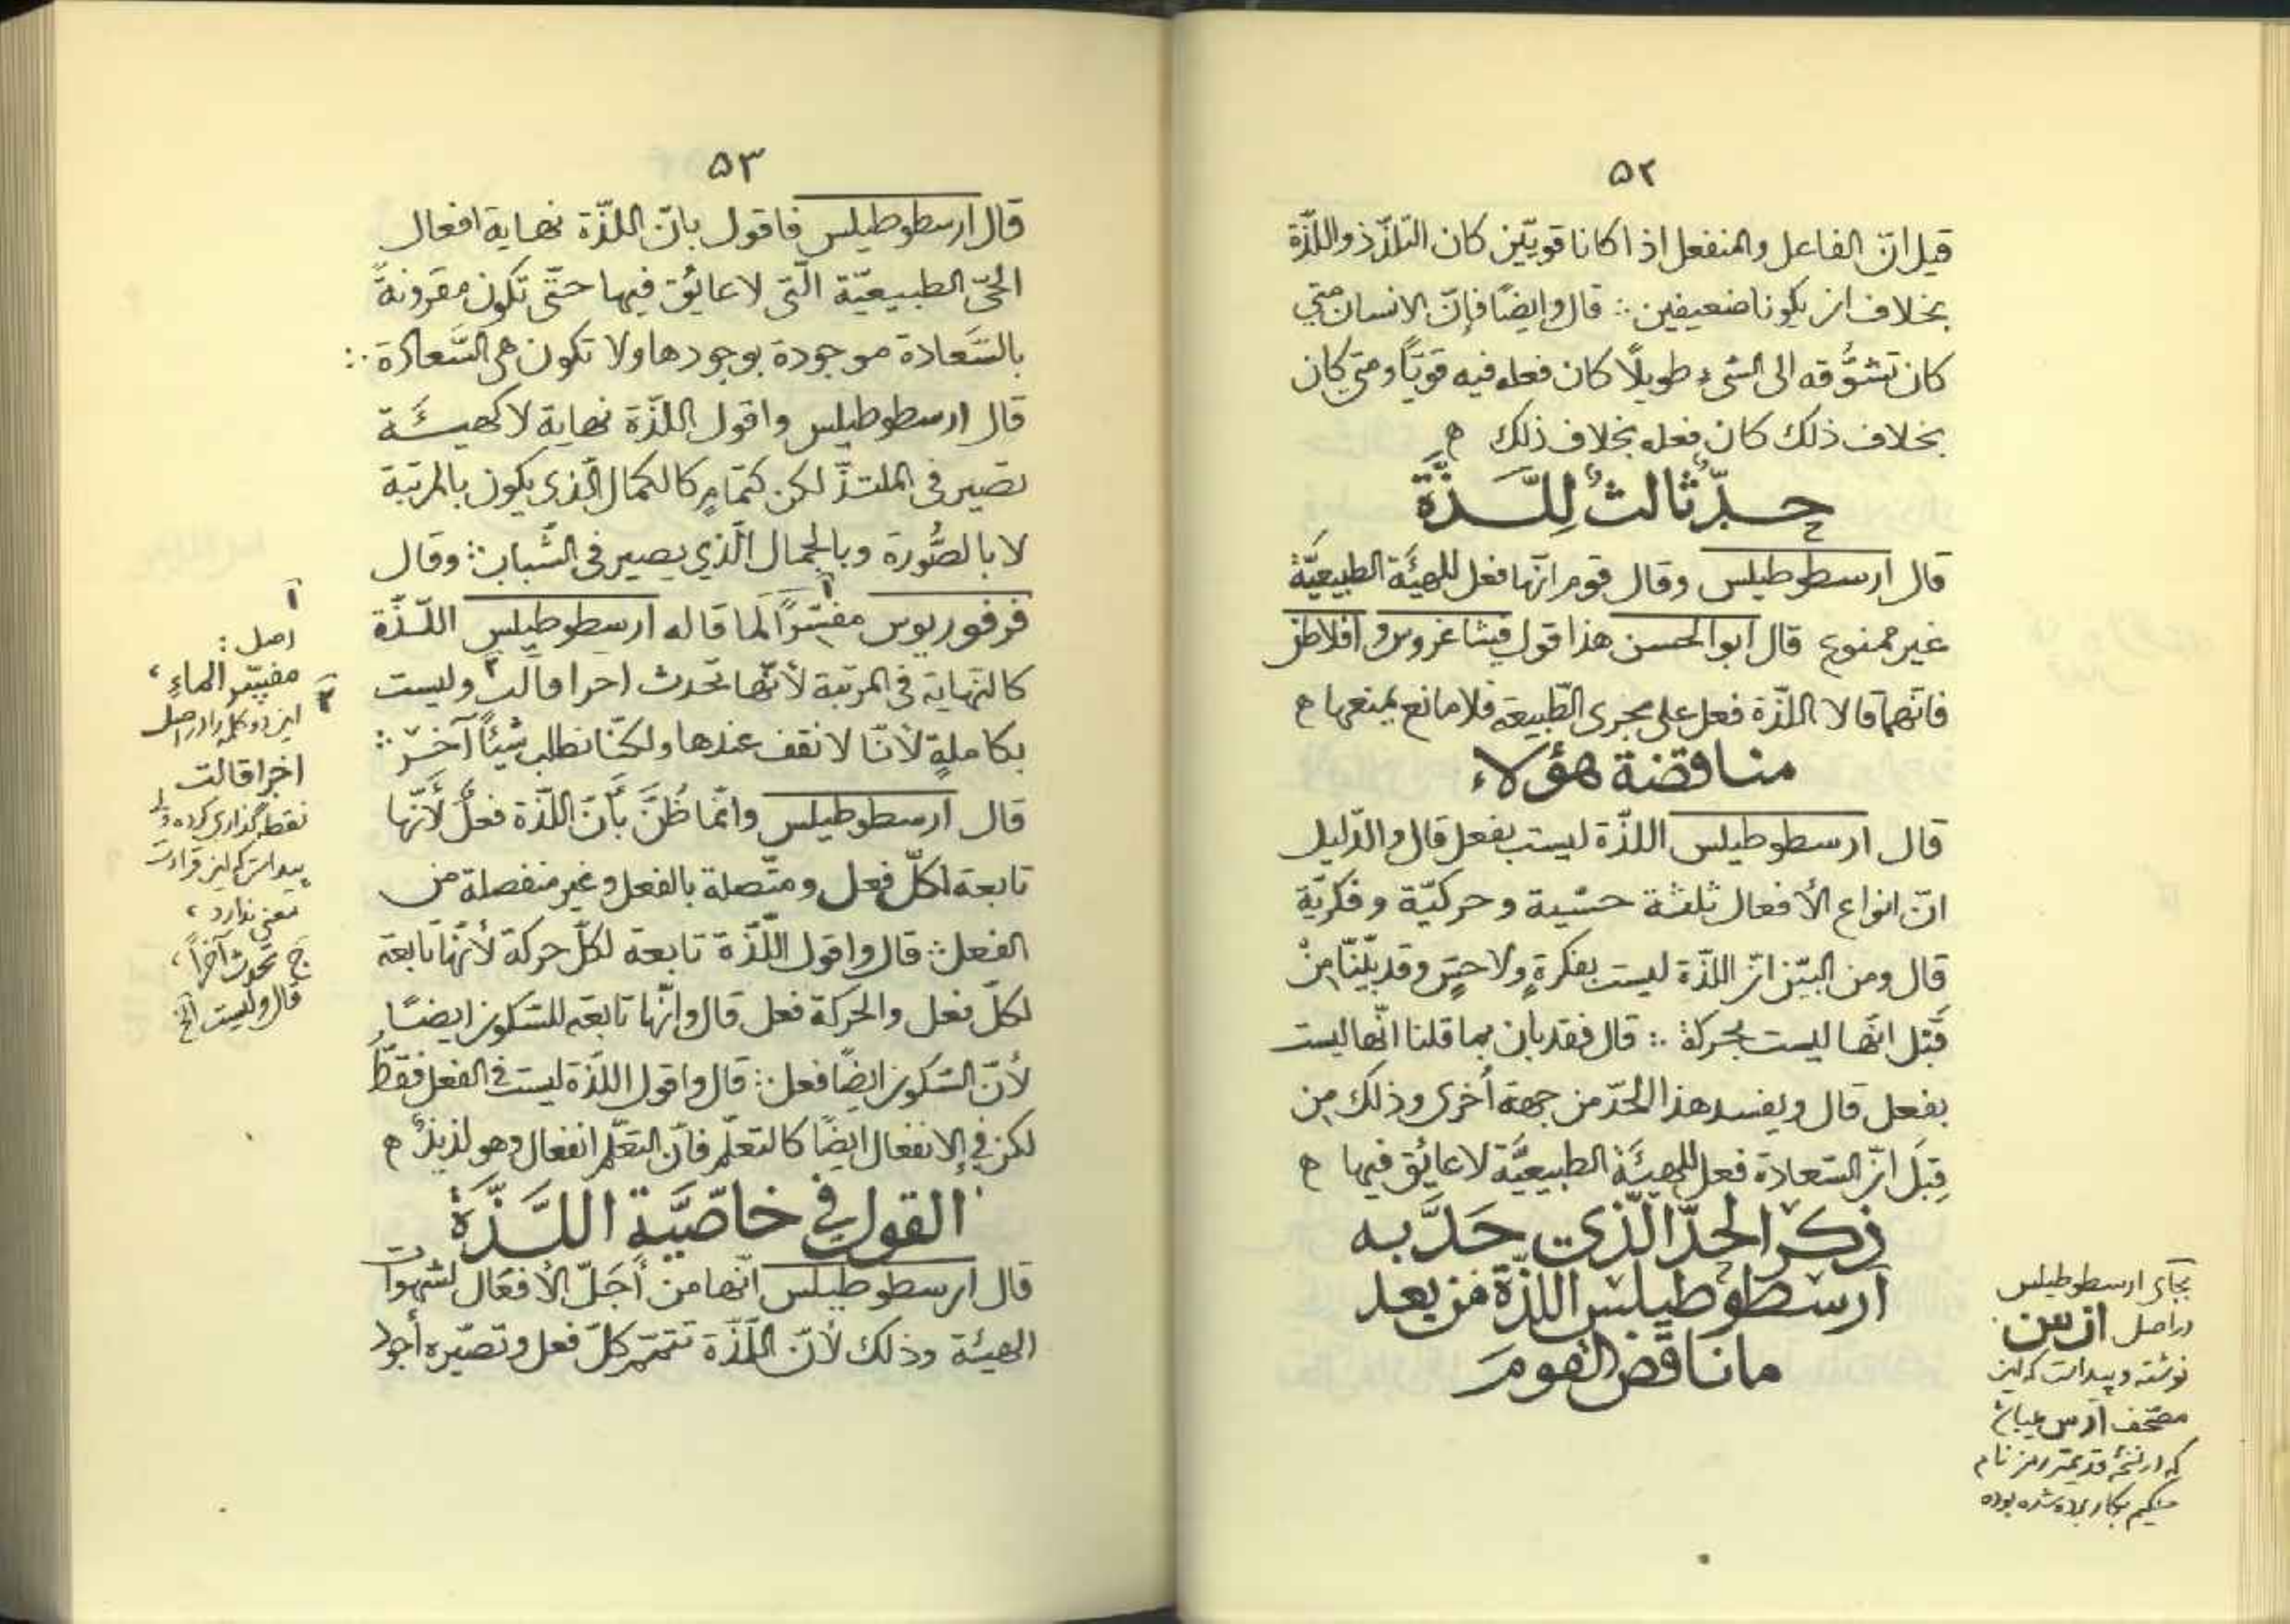 ۵۲
قيل انّ الفاعل والمنفعل اذا كانا قويّين كان التلذّذ واللّذّة
بخلاف ان يكونا ضعيفين ∴ قال وايضًا فإنّ الانسان متي
كان تشوُّقه الى الشىء طويلًا كان فعله فيه قويّاً ومتى كان
بخلاف ذلك كان فعله بخلاف ذلك ه
حدّ ثالث لِلَّذَّة
قال ارسطوطيلس وقال قوم انّها فعل للهيئَة الطبيعيَّة
غير ممنوع قال ابوالحسن هذا قول فيثاغروس و افلاطن
فانّهما قالا اللّذّة فعل على مجرى الطّبيعة فلا مانع يمنعها ه
مناقضة هؤلاء
قال ارسطوطيلس اللّذّة ليست بفعل قال والدّليل
انّ انواع الأفعال ثلثة حسّية و حركيّة و فكريّة
قال ومن البيّن انّ اللّذّة ليست بفكرةٍ ولا حسٍّ وقد بيّنّا مِنْ
قَبْل انّها ليست بحركة ∴ قال فقد بان بما قلنا انّها ليست
بفعل قال ويفسد هذا الحدّ من جهة أُخرى وذلك من
قِبَل انّ السّعادة فعل للهيئَة الطبيعيَّة لا عائق فيها ه
ذكر الحدّ الّذي حَدَّ به
ارسطوطيلس اللّذّة من بعد
ما ناقَض القوم
بجای ارسطوطيلس
در اصل ازس
نوشته و پيداست كه اين
مصحّف ارس ميباشد
كه در نسخهٔ قديمتر رمز نام
حكيم بكار برده شده بوده
۵۳
قال ارسطوطيلس فاقول بانّ اللّذّة نهاية افعال
الحىّ الطبيعيّة الّتى لا عائق فيها حتّى تكون مقرونةً
بالسَّعادة موجودة بوجودها ولا تكون هى السَّعادة ∴
قال ارسطوطيلس واقول اللّذّة نهاية لا كهيئَة
تصير فى الملتذّ لكن كتمامٍ كالكمال الّذى يكون بالمرتبة
لا بالصُّورة وبالجمال الّذي يصير فى الشّباب ∴ وقال
فرفوريوس مفسّرًا ۱ لما قاله ارسطوطيلس اللّذّة
كالنّهاية فى المرتبة لأنّها تحدث اخرا قالت ۲ وليست
بكاملةٍ لأنّا لا نقف عندها ولكنّا نطلب شيئاً آخر ∴
قال ارسطوطيلس وانّما ظُنَّ بأنّ اللّذّة فعلٌ لأنّها
تابعة لكلّ فعل و متّصلة بالفعل و غير منفصلة من
الفعل ∴ قال واقول اللّذّة تابعة لكلّ حركة لأنّها تابعة
لكلّ فعل والحركة فعل قال وانّها تابعة للسّكون ايضًا
لأنّ السّكون ايضًا فعل ∴ قال واقول اللّذّة ليست فى الفعل فقطْ
لكن فى الانفعال ايضًا كالتعلّم فانّ التعلّم انفعال وهو لذيذ ه
القول في خاصّيَّة اللَّذَّة
قال ارسطوطيلس انّها من أجَلّ الأفعال لشهوات
الهيئة وذلك لأنّ اللّذّة تتمّم كلّ فعل وتصيّره أجود
۱
اصل :
مفسّر الماءِ ،
۲
اين دو كلمه را در اصل
اخرا قالت
نقطه گذارى كرده ولى
پيداست كه اين قراءت
معنى ندارد ،
ج تحدث آخراً ،
قال وليست الخ